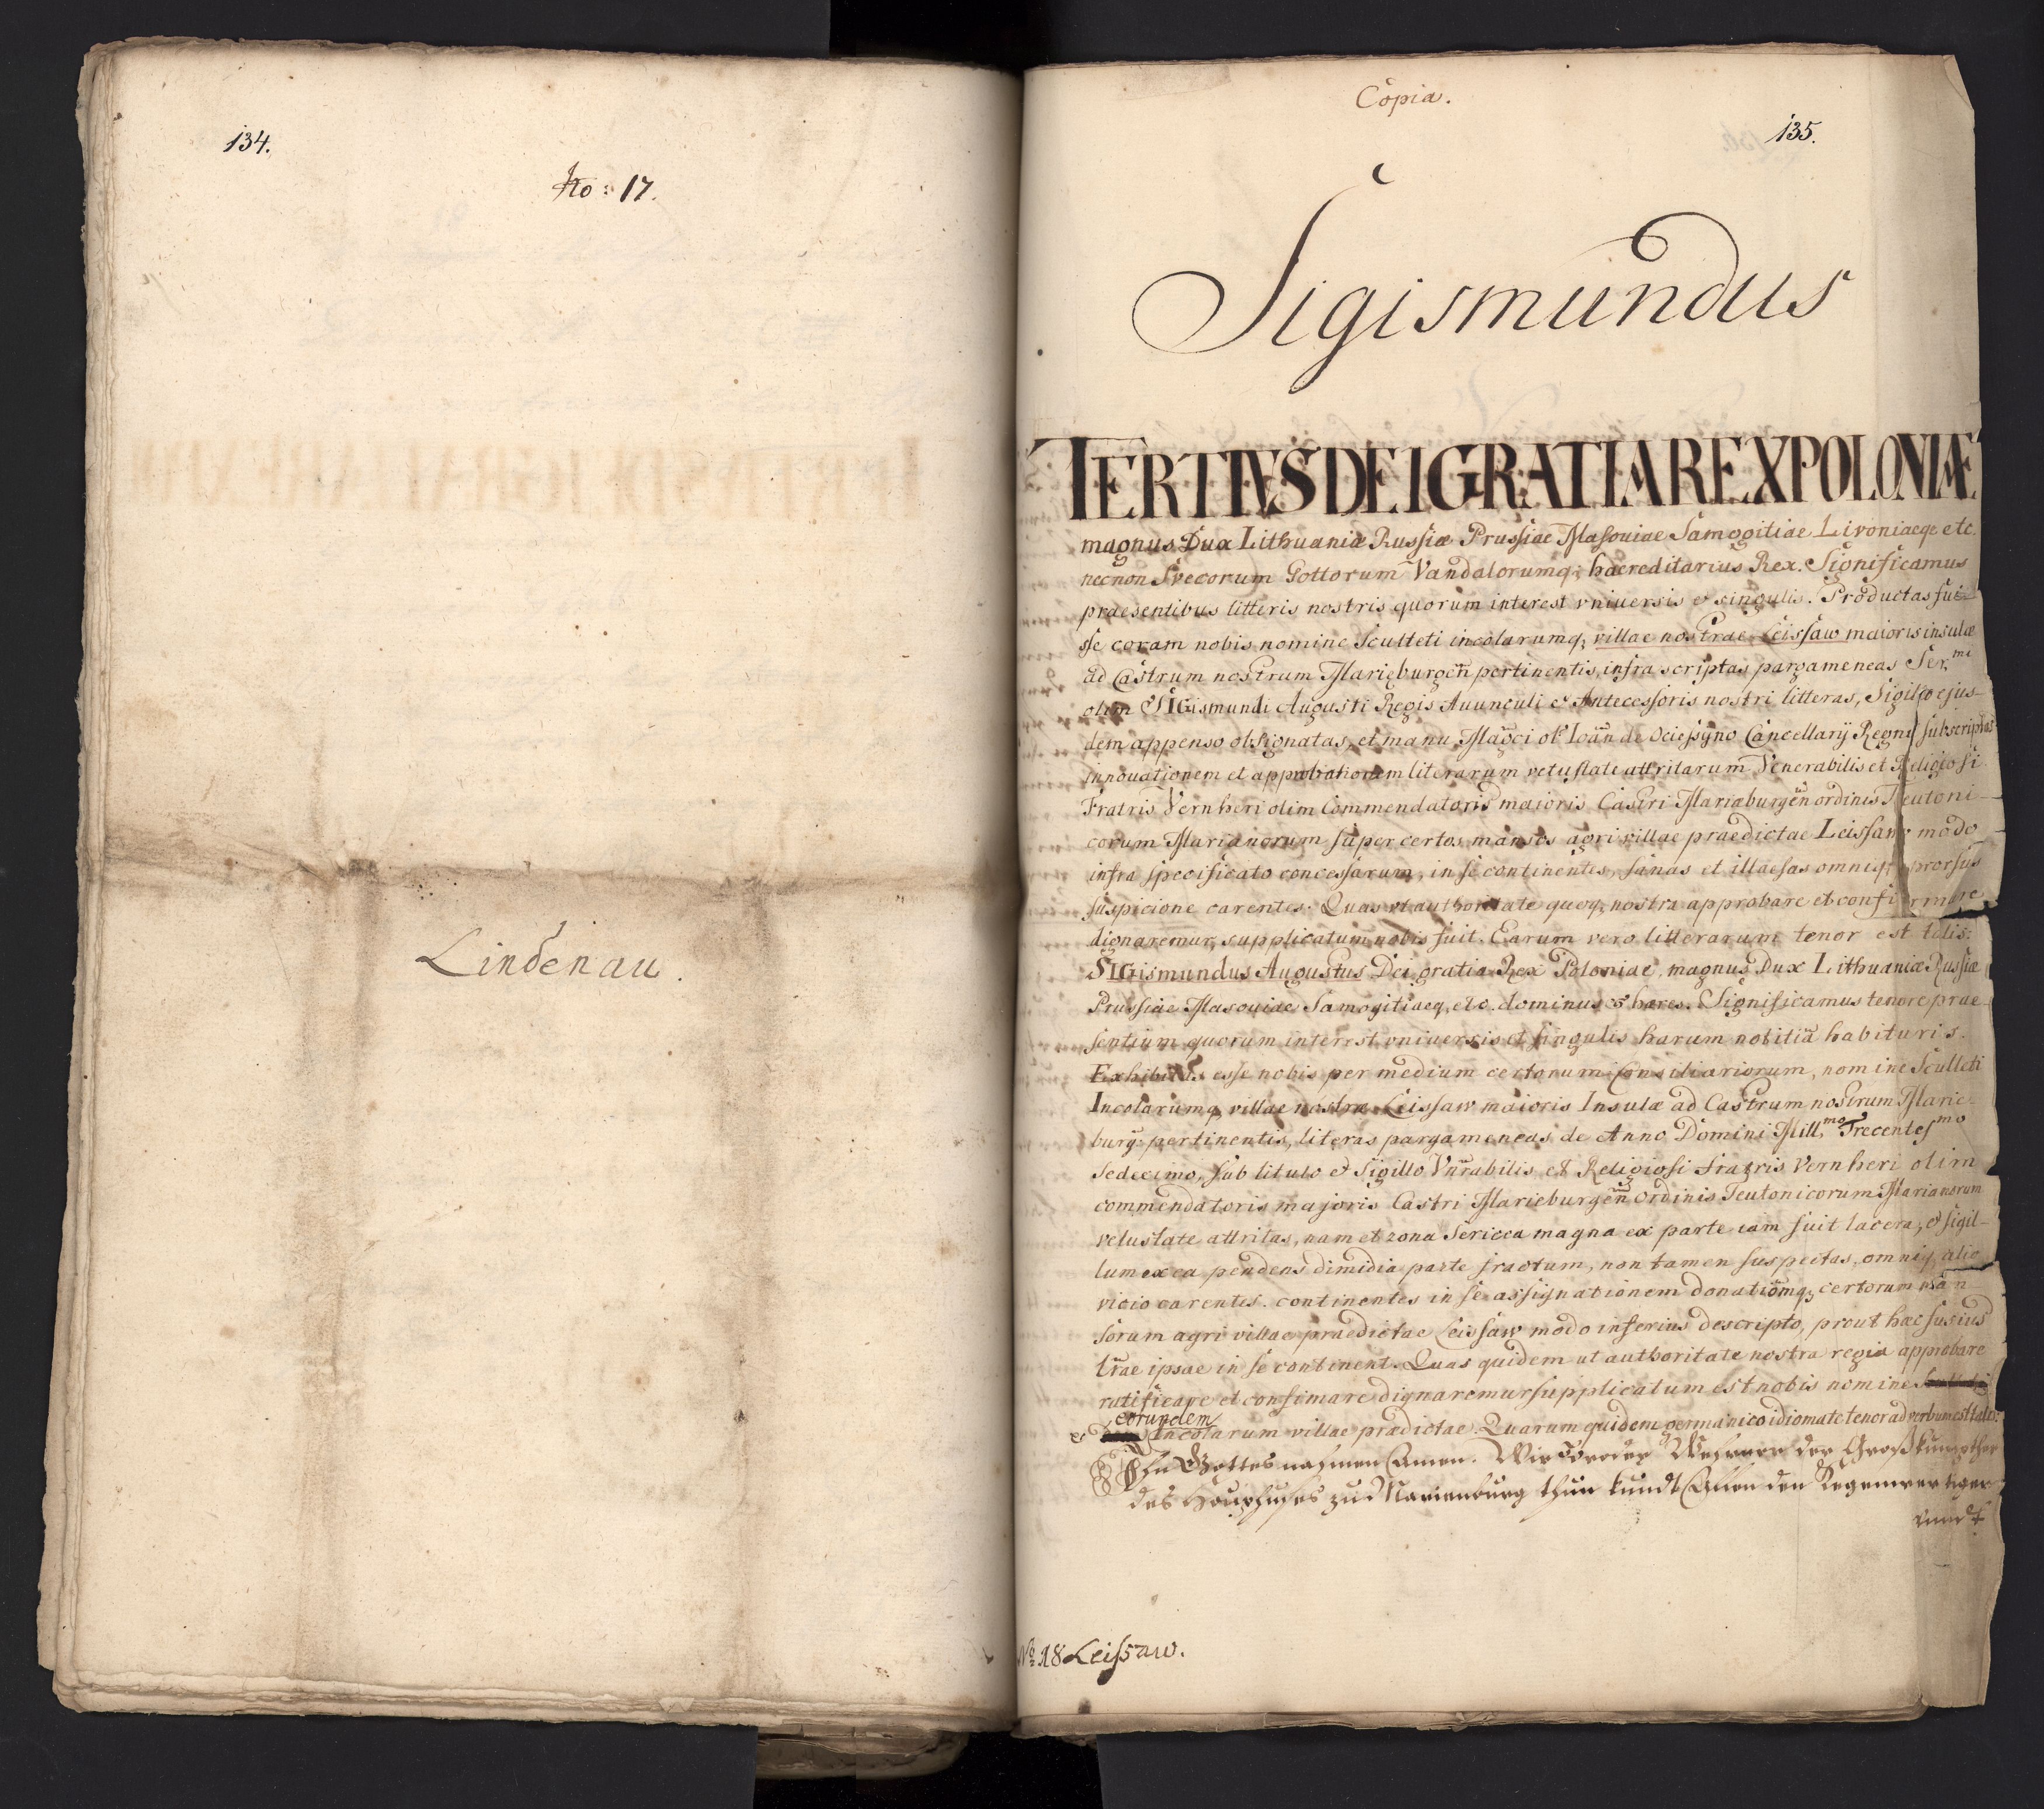 134.
No: 17.
Lindenau.
Copia.
135.
Sigismundus
TERTIVS DEI GRATIA REX POLONIÆ
magnus Dux Lithuaniæ Russiæ Prussiae Masouiae Samogitiae Livoniaeqe etc.
necnon Svecorum Gottorum Vandalorumq; haereditarius Rex. Significamus
praesentibus litteris nostris quorum interest vniuersis & singulis. Productas fuis-
se coram nobis nomine Sculteti incolarumq; villae nostrae Leissaw maioris insulæ
ad Castrum nostrum Marieburgen̄ pertinentis, infra scriptas pargameneas Ser.mi
olim SIGismundi Augusti Regis Auunculi & Antecessoris nostri litteras, Sigillo ejus-
dem appenso obsignatas, et manu Magci ol Ioan̄ de Ociesyno Cancellarij Regni subscriptas
innouationem et approbationem literarum vetustate attritarum Venerabilis et Religiosi
Fratris Vernheri olim Commendatoris maioris Castri Mariæburgen̄ ordinis Teutoni-
corum Marianorum super certos mansos agri villae praedictae Leissaw modo
infra specificato concessarum, in se continentes, sanas et illaesas omniq; prorsus
suspicione carentes. Quas vt authoritate quoq; nostra approbare et confirmare
dignaremur, supplicatum nobis fuit. Earum vero litterarum tenor est talis.
SIGismundus Augustus Dei gratia Rex Poloniae, magnus Dux Lithuaniæ Russiæ
Prussiae Masouiae Samogitiaeq, etc. dominus & hæres. Significamus tenore prae-
sentium quorum interest vniuersis et singulis harum notitiā habituris.
Exhibitas esse nobis per medium certorum Consiliariorum, nomine Sculteti
Incolarumq, villae nostræ Leissaw maioris Insulæ ad Castrum nostrum Marie-
burg: pertinentis, literas pargameneas de Anno Domini Mill.mo Trecentes.mo
Sedecimo, sub titulo & Sigillo Vn̄rabilis et Religiosi fratris Vernheri olim
commendatoris majoris Castri Marieburgen̄ Ordinis Teutonicorum Marianorum
vetustate attritas, nam et zona Sericea magna ex parte iam fuit lacera, & sigil-
lum ex ea pendens dimidia parte fractum, non tamen suspectas, omniq, alio
vicio carentes. continentes in se assignationem donationq, certorum man-
sorum agri villae praedictae Leissaw modo inferius descripto, prout hæc fusius
lr̄ae ipsae in se continent. Quas quidem ut authoritate nostra regia approbare
ratificare et confirmare dignaremur supplicatum est nobis nomine
eorundem
& Incolarum villae prædictae. Quarum quidem germanico idiomate tenor ad verbum est talis:
Ihn Gottes nahmen Amen. Wir Bruder Wehrner der Großkumpthor
des Haupthuses zu Marienburg thun kundt Allen den Kegenwertigen
vnndt
No 18 Leissaw.